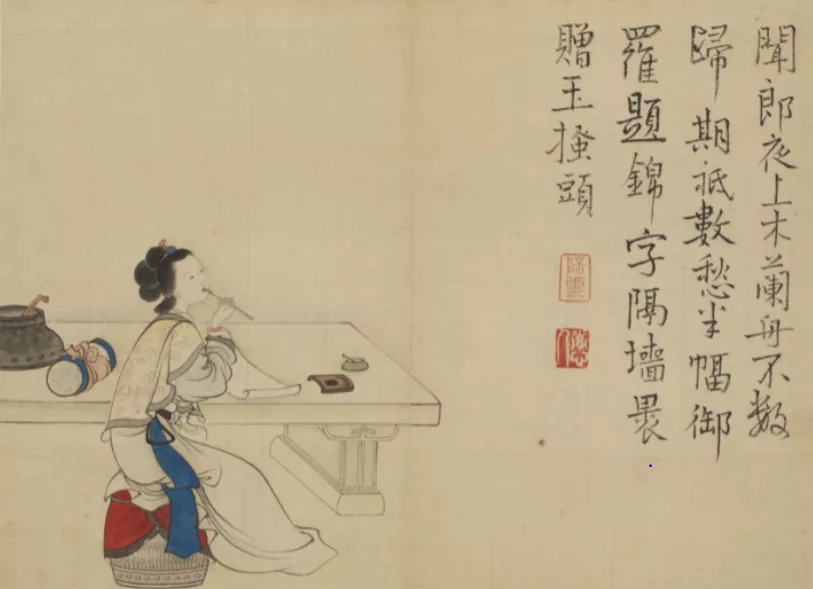 聞郎夜上木蘭舟不数
歸期祇數愁半幅御
羅題錦字隔墻裹
贈玉搔頭